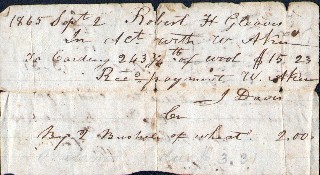 1865 Sept 2 Robert H Cleaves
In Act with W. Aken
To Carding 243 ½ lb of wool $15,23
Recd payment W. Aken
J Davis
Cr
By 2 Bushels of wheat 2.00